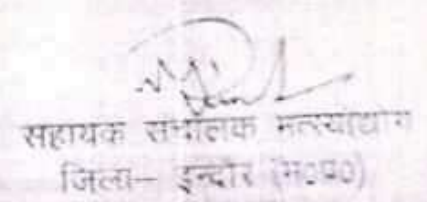 सहायक संचालक मत्स्योद्योग
जिला- इन्दौर (म०प्र०)